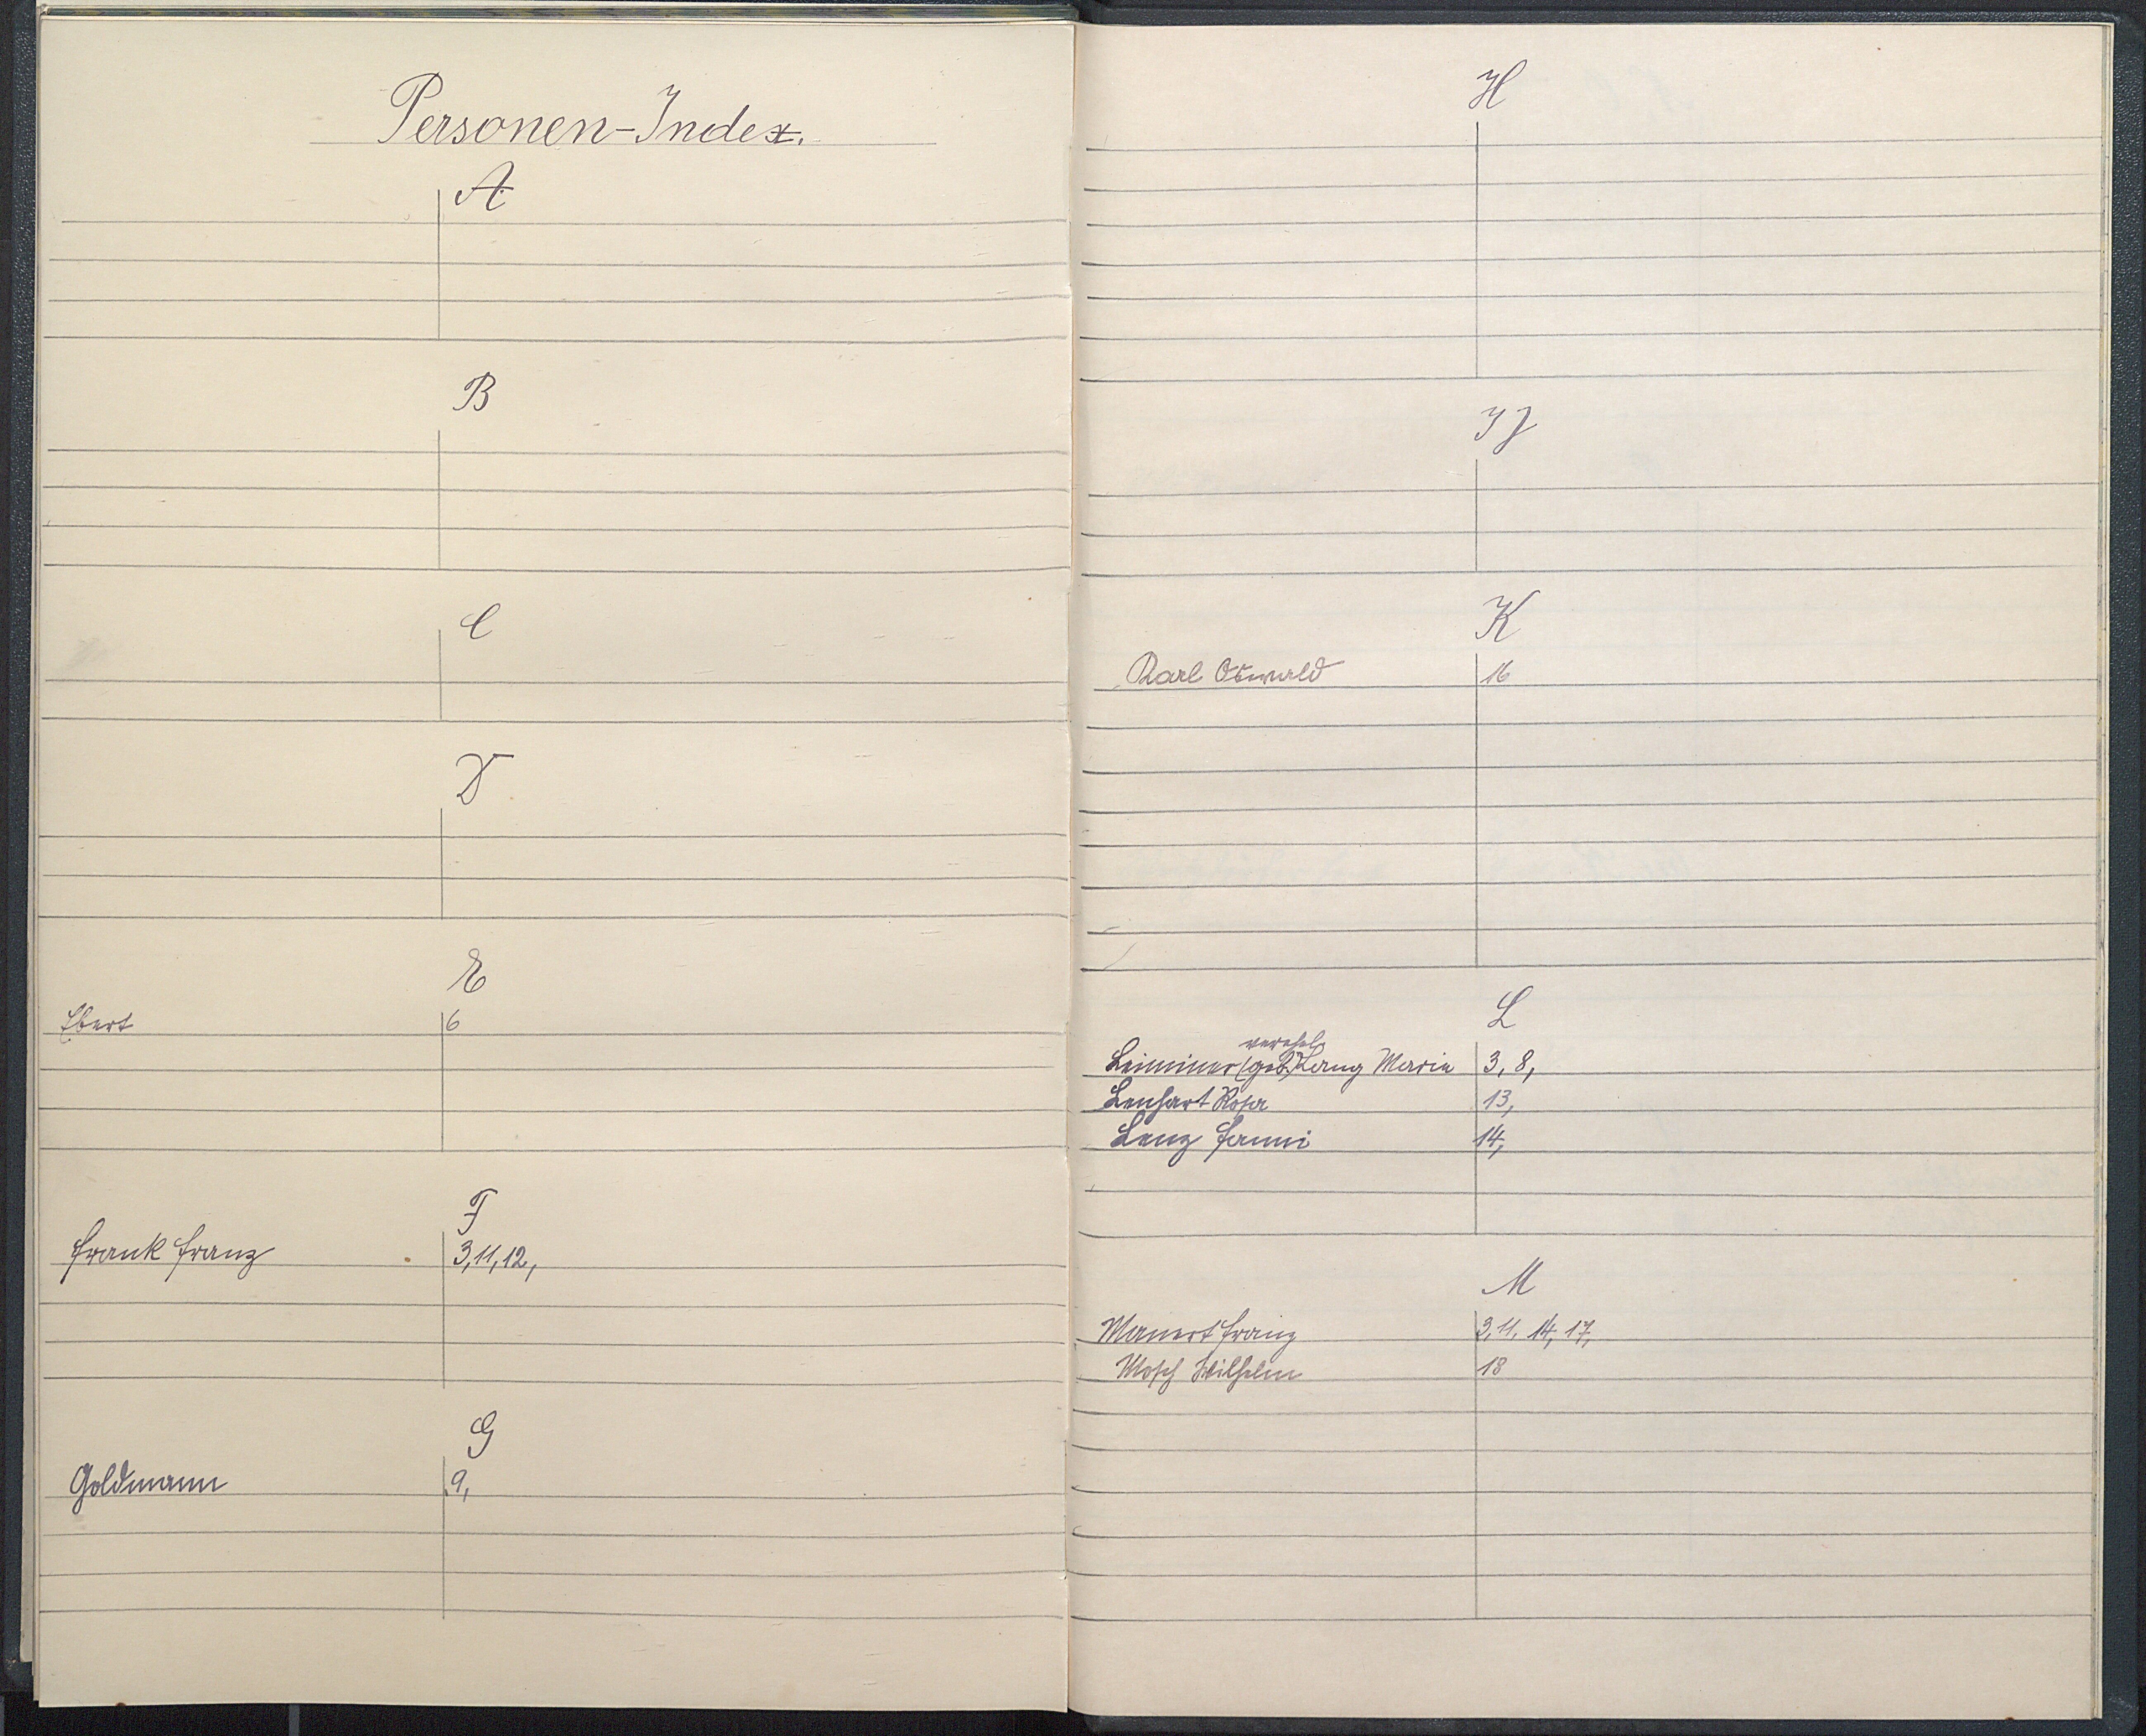 Personen-Index.
A
B
C
D
E
Ebert 6
F
Frank Franz 3, 11, 12,
G
Goldmann 9,
H
I J
K
Karl Oswald 16
L
verehel.
(geb.) Lang Marie 3, 8,
Lenhart Rosa 13,
Lenz Fanni 14,
M
Manert Franz 3, 11, 14, 17,
Mosch Wilhelm 18